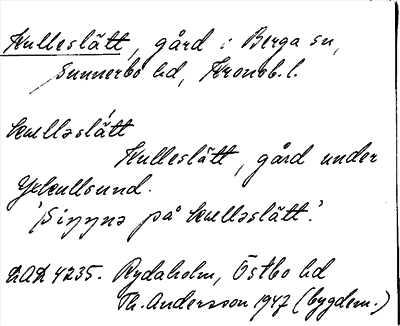 Kulleslätt, gård i Berga sn,
Sunnerbo hd, Kronob. l.
kulləslä́tt
Kulleslätt, gård under
Yxkullsund.
'Siŋŋnə på kulləslätt.'
LAL 4235. Rydaholm, Östbo hd
Th. Andersson 1947 (bygdem.)